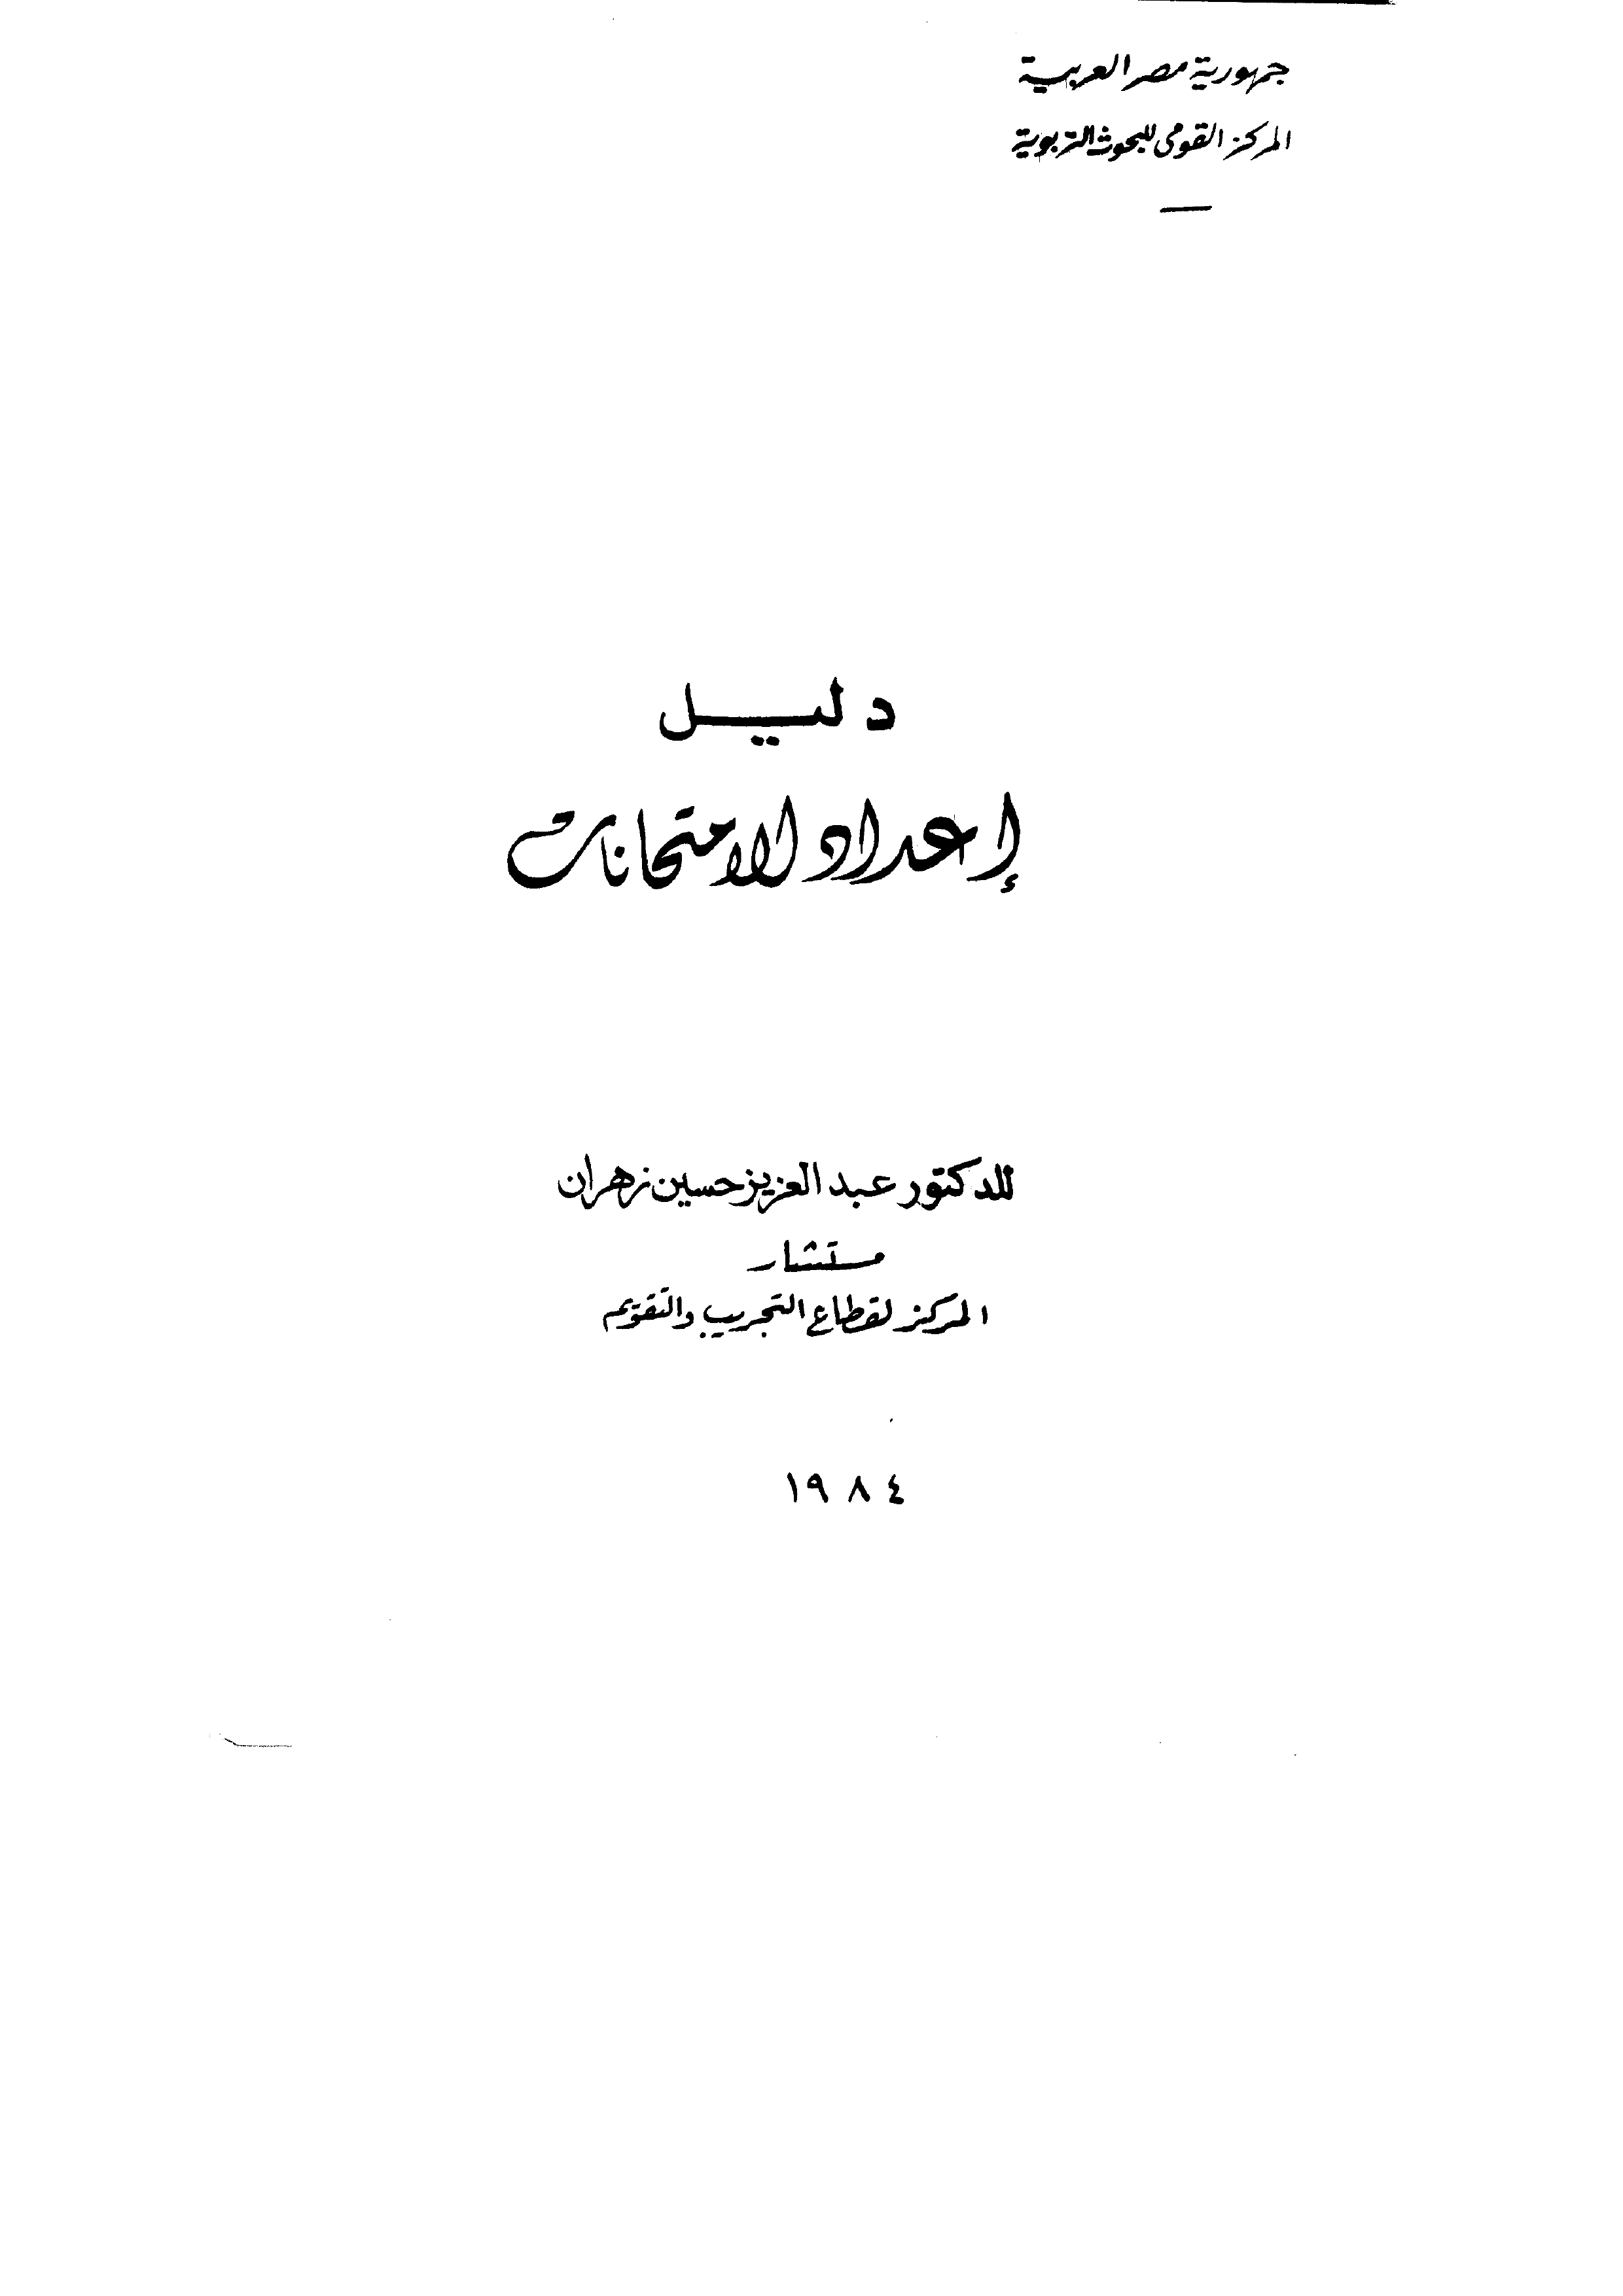 جمهورية مصر العربية
المركز القومى للبحوث التربوية
دليل
إعداد الامتحانات
للدكتور عبد العزيز حسين زهران
مستشار
المركز لقطاع التجريب والتقويم
١٩٨٤